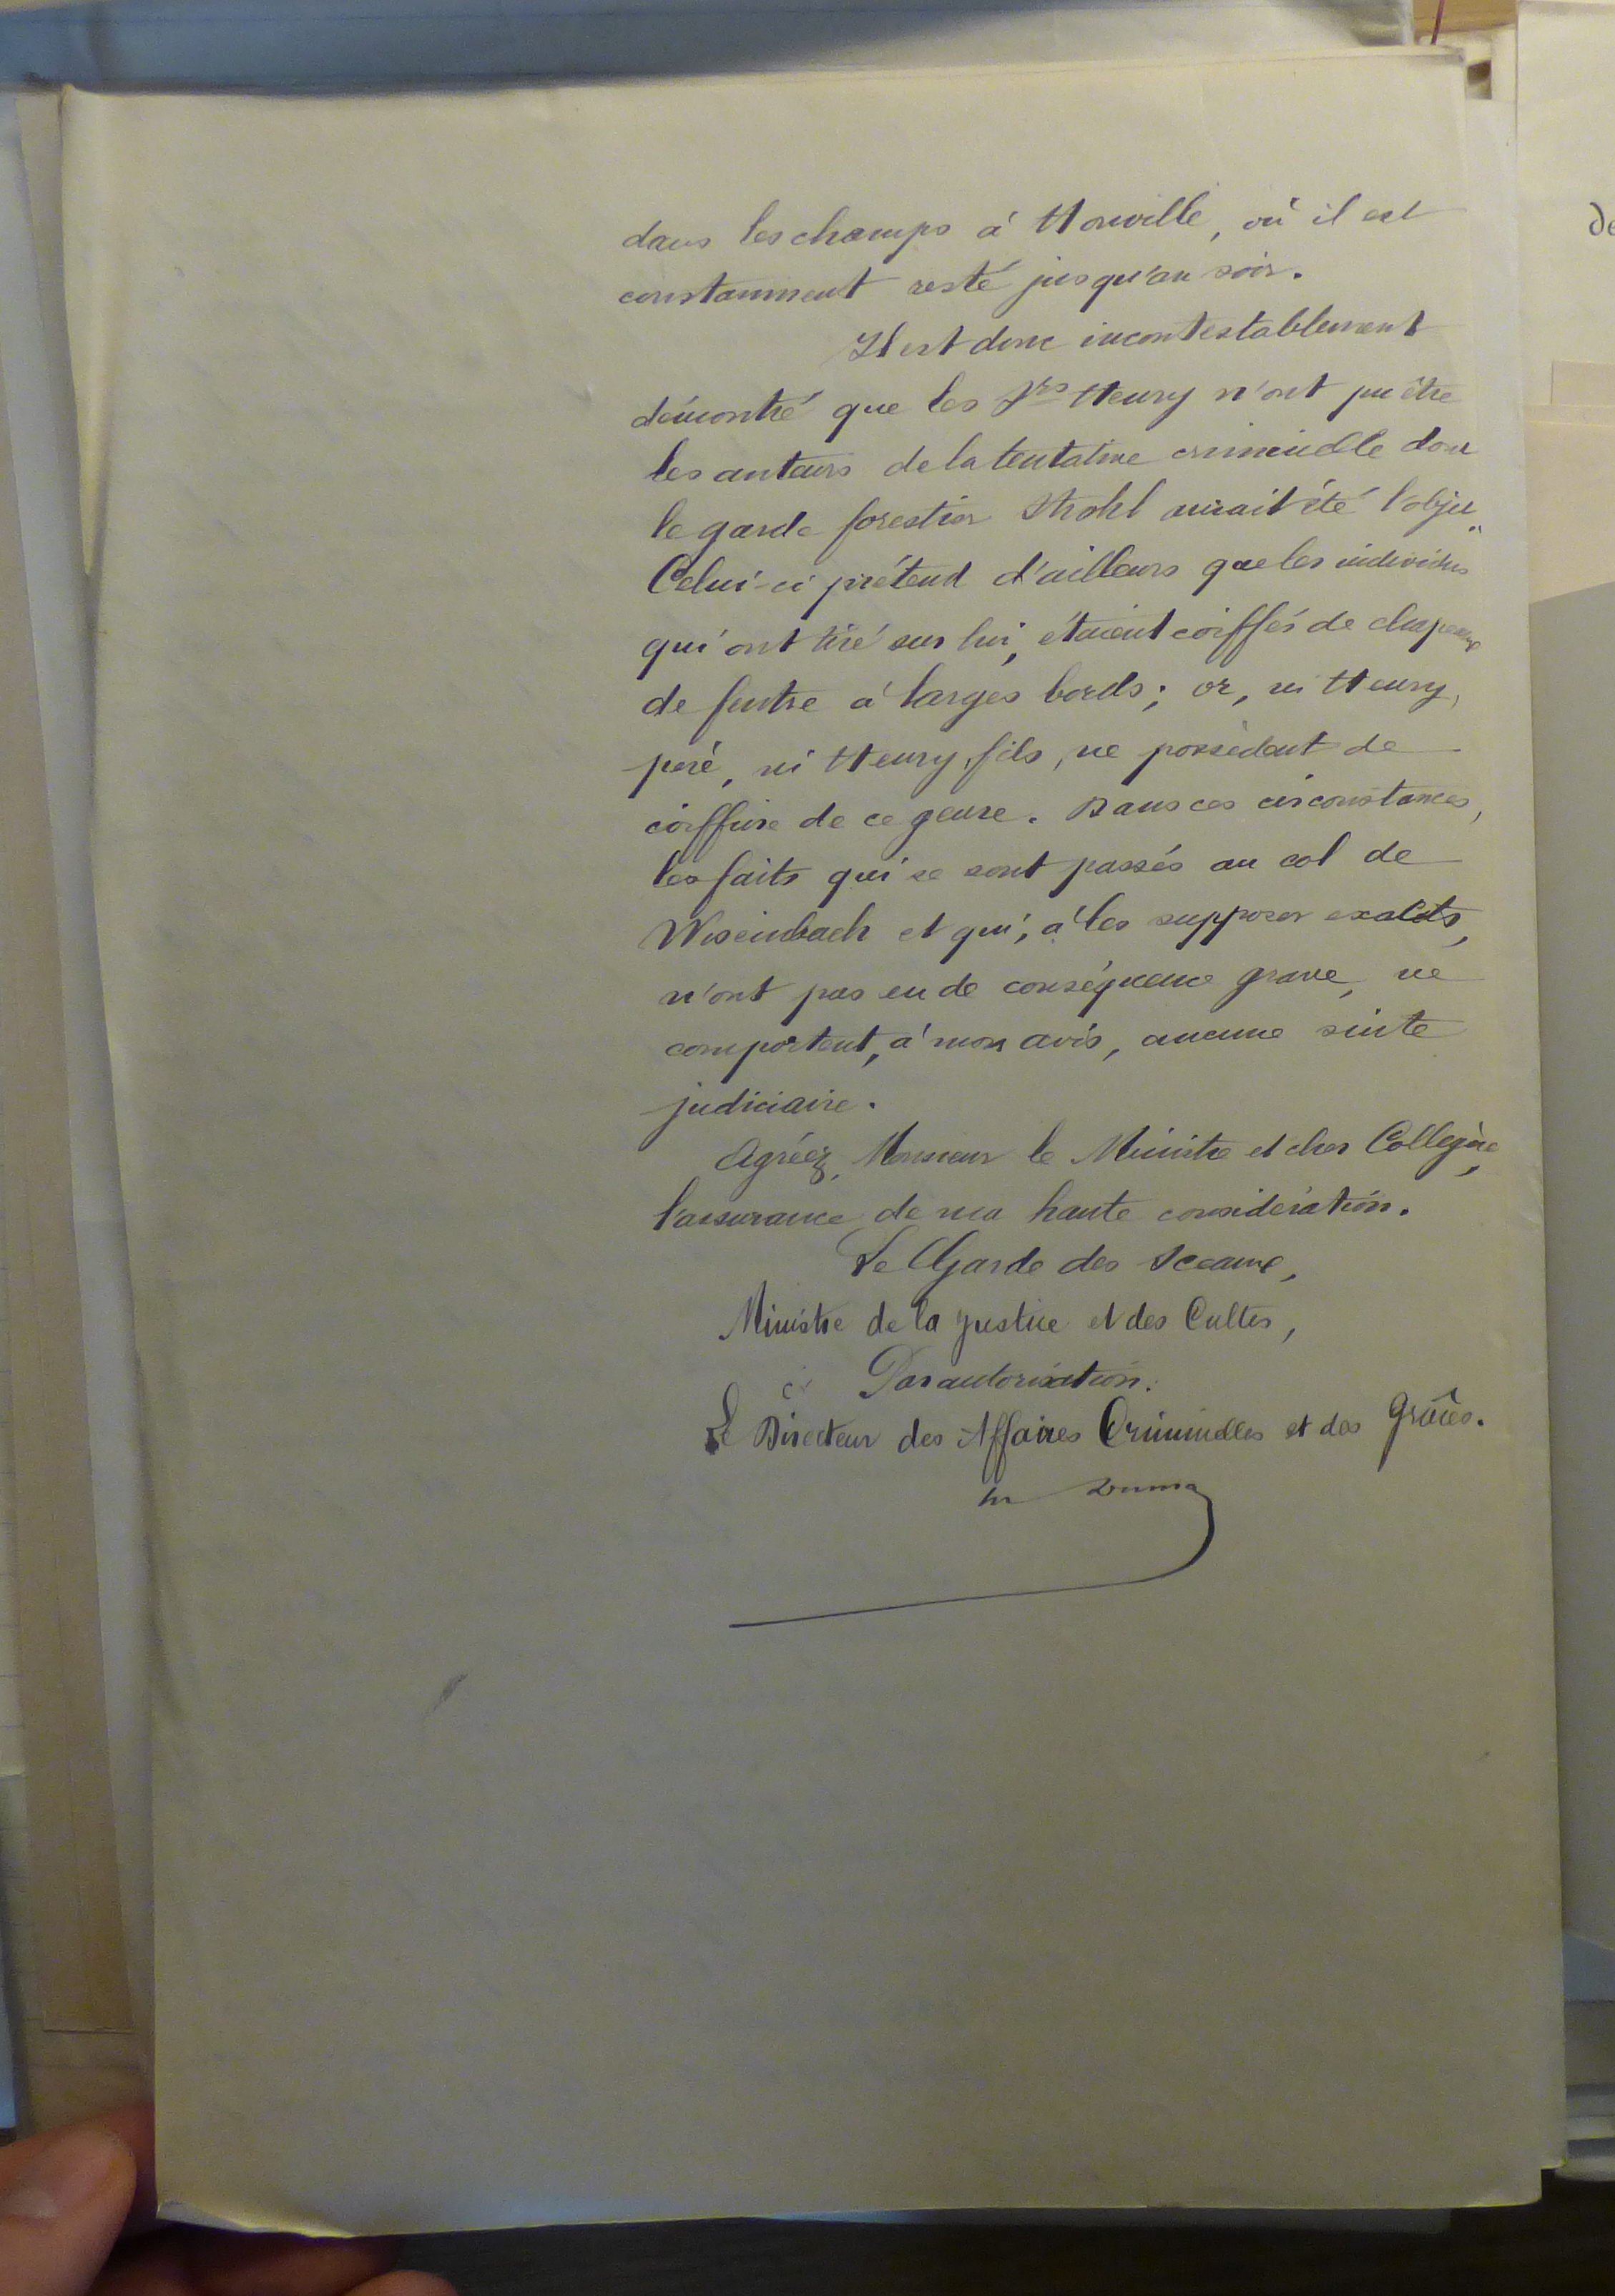 dans les champs à Honville, où il est
constamment resté jusqu'au soir.
Il est donc incontestablement
démontré que les Srs Henry n'ont pu être
les auteurs de la tentative criminelle dont
le garde forestier Strohl aurait été l'objet.
Celui-ci prétend d'ailleurs que les individus
qui ont tiré sur lui, étaient coiffés de chapeaux
de feutre à larges bords; or, ni Henry,
père, ni Henry, fils, ne possèdent de
coiffure de ce genre. Dans ces circonstances,
les faits qui se sont passés au col de
Wisembach et qui, à les supposer exacts,
n'ont pas eu de conséquence grave, ne
comportent, à mon avis, aucune suite
judiciaire.
Agréez, Monsieur le Ministre et cher Collègue,
l'assurance de ma haute considération.
Le Garde des Sceaux,
Ministre de la Justice et des Cultes,
Par autorisation.
Le Directeur des Affaires Criminelles et des Grâces.
de